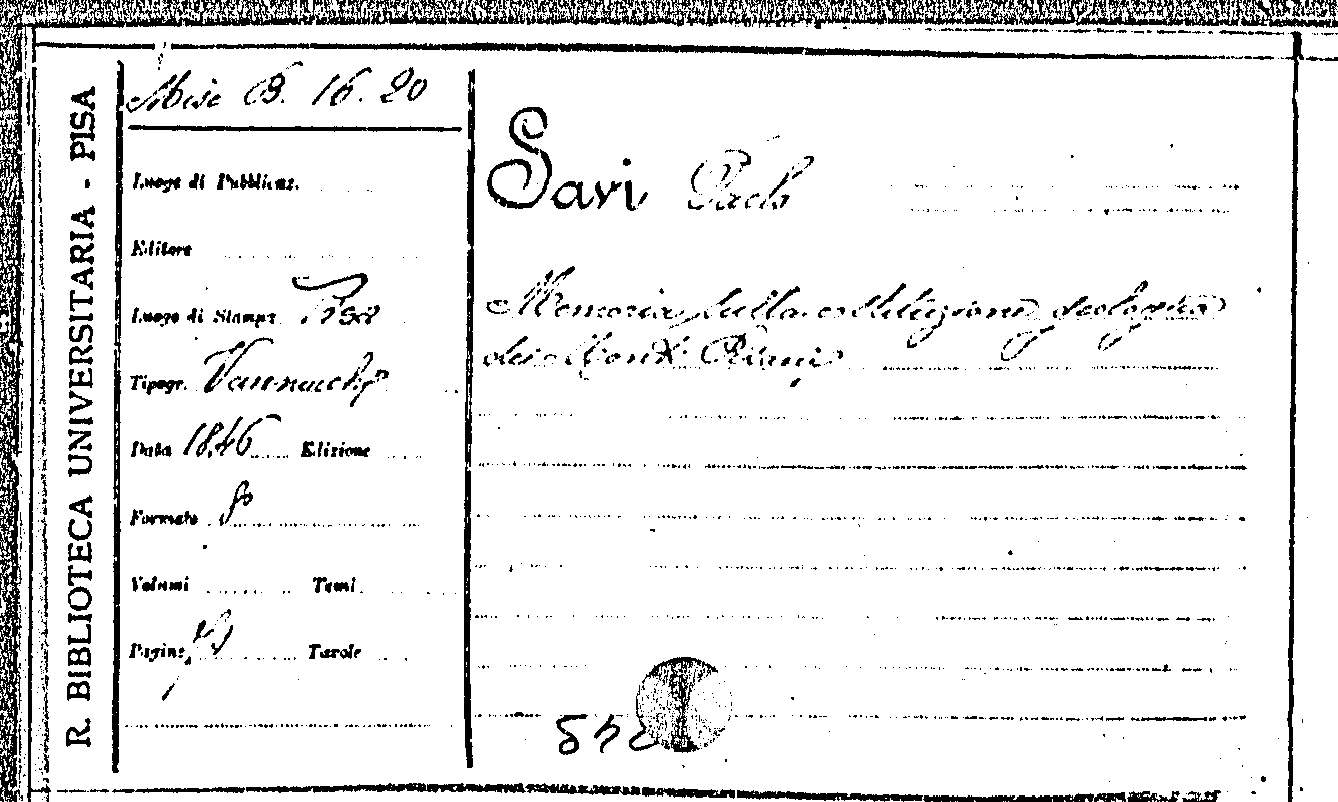 R. BIBLIOTECA UNIVERSITARIA - PISA
Misc B. 16. 20
Luogo di Pubblicaz.
Editore
Luogo di Stampa Pisa
Tipogr. Vannucchi
Data 1846 Edizione
Formato 8°
Volumi Tomi
Pagine Tavole
Savi Paolo
Memoria sulla costituzione geologica
dei Monti Pisani